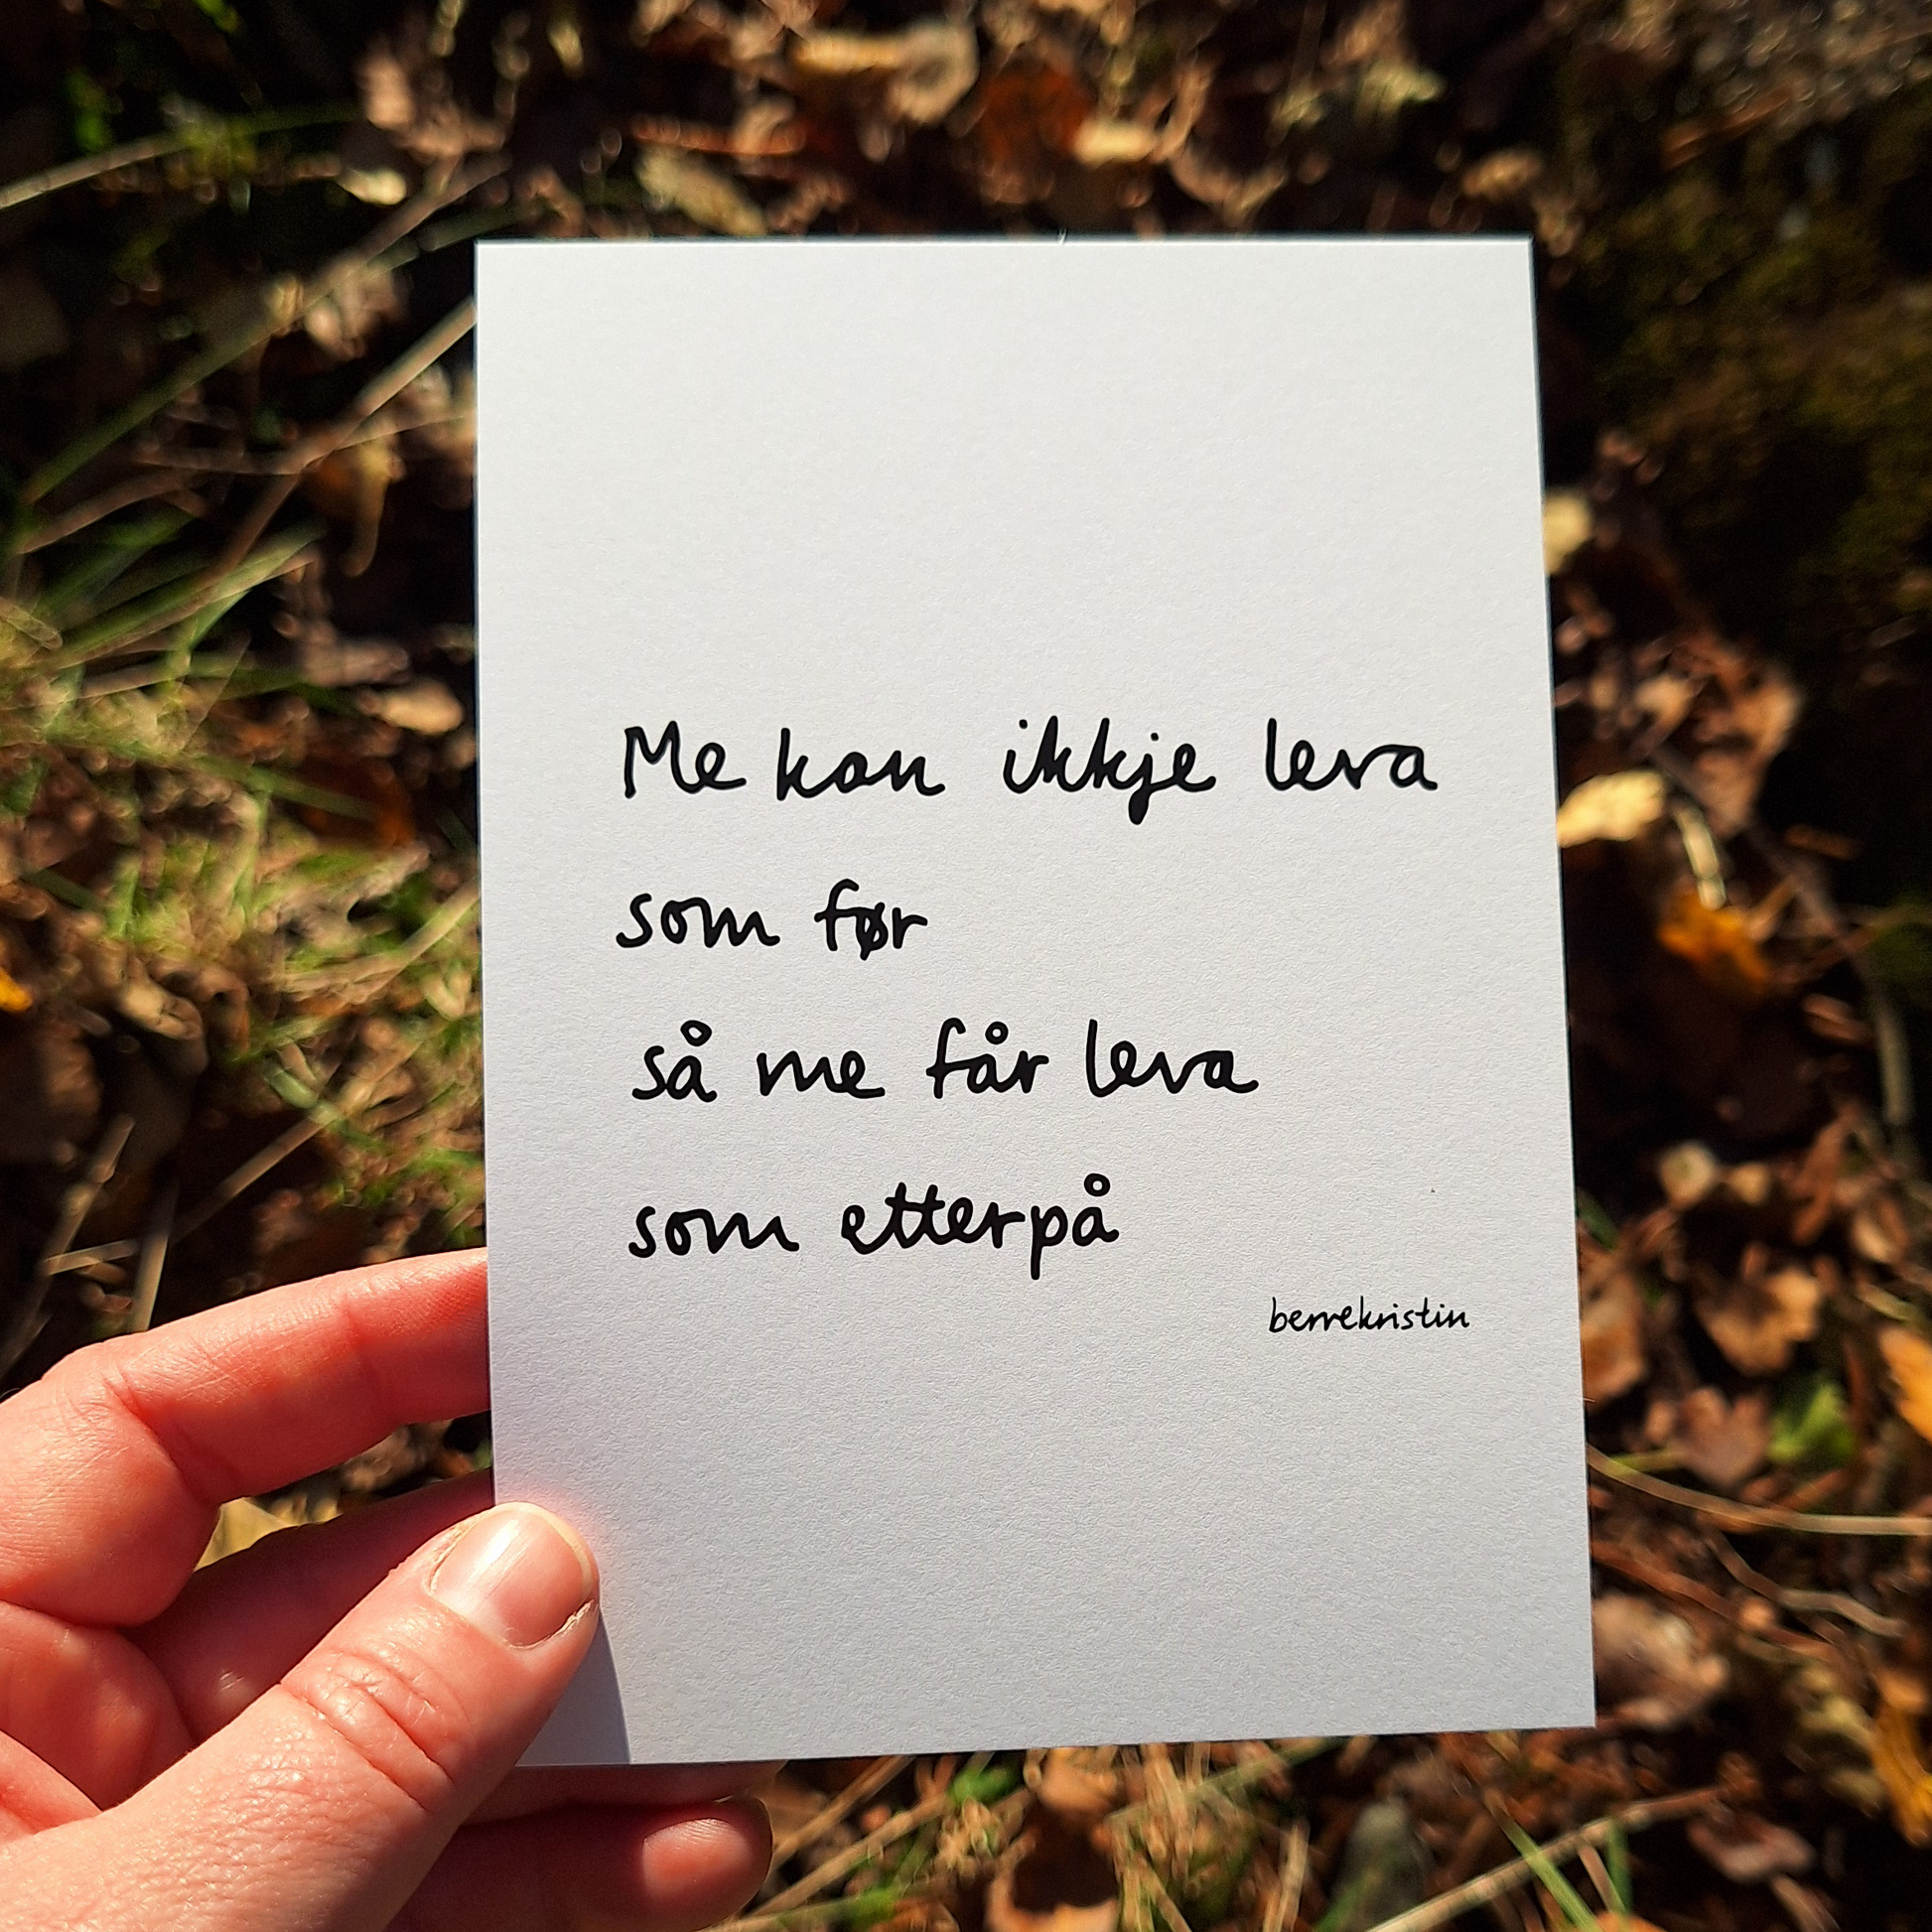 Me kan ikkje leva
som før
så me får leva
som etterpå
berrekristin